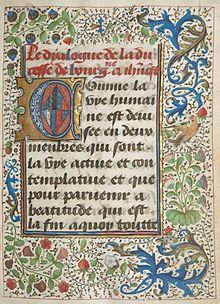 Le dialogue de la du
cesse de bourg. a ihūcrist
Comme la
vye humai
ne est deui
see en deux
membres qui sont
la vye actiue et con
templatiue et que
pour paruenir a
beatitude qui est
la fin a quoy toutte